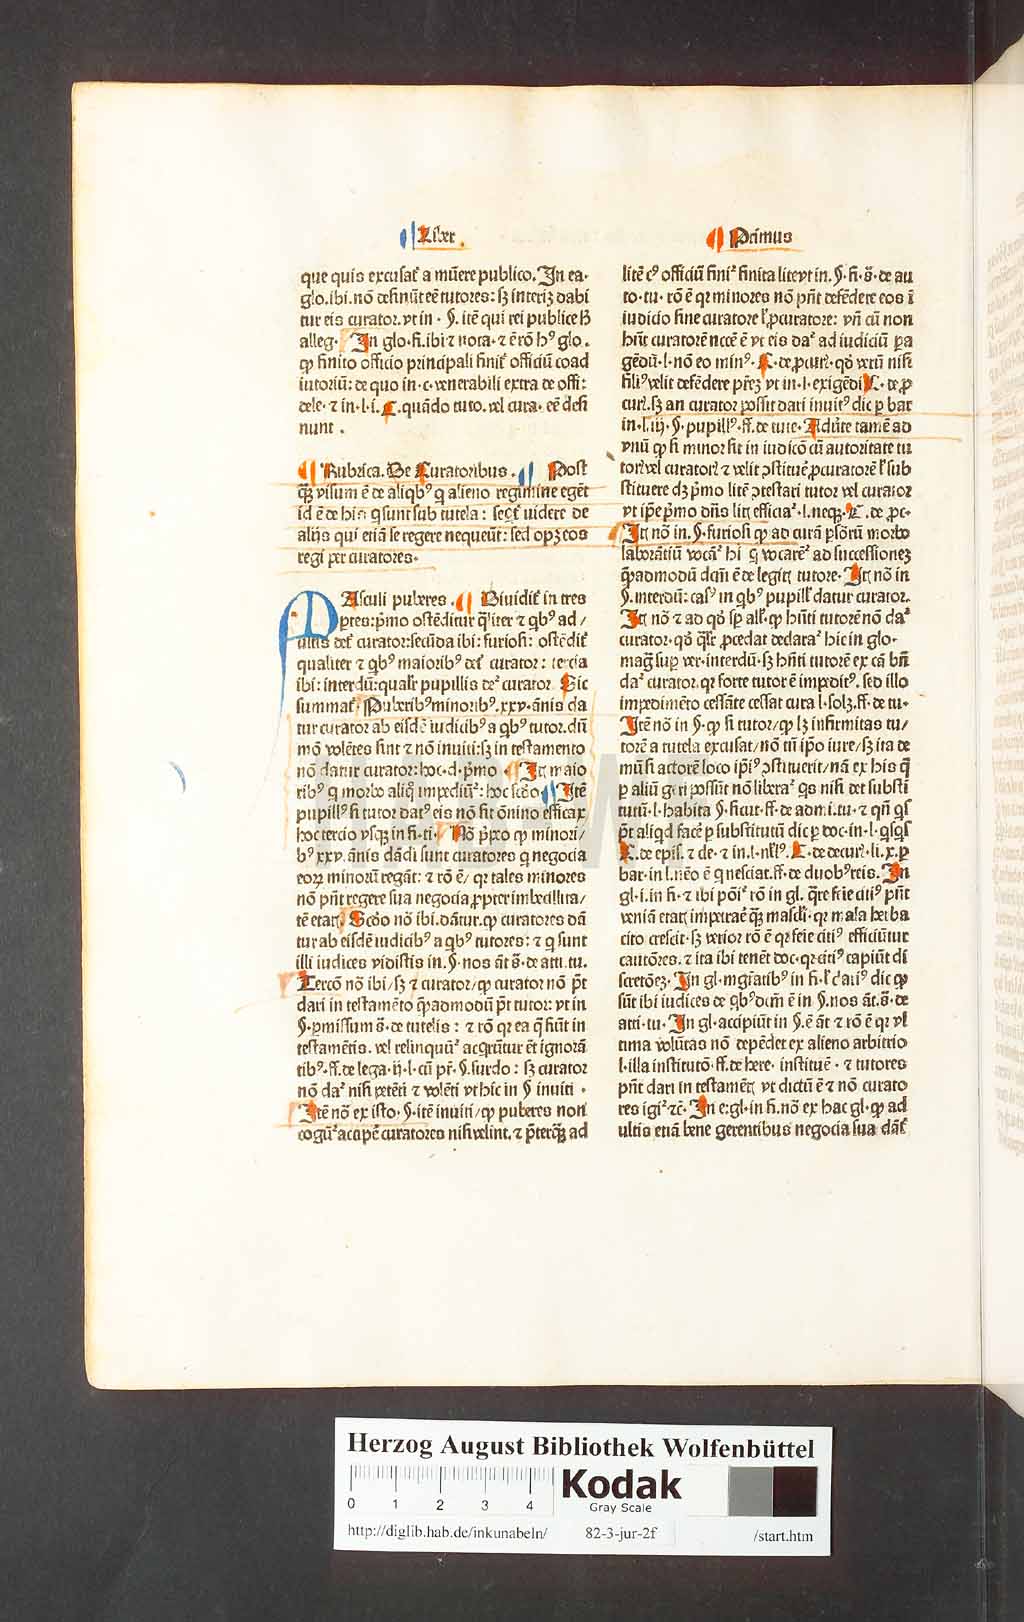 Liber
Primus
que quis excusat᷑ a mūere publico. In ea·
glo. ibi. nō definūt eē tutores: sꝫ interiꝫ dabi
tur eis curator. vt in · §. itē qui rei publice
alleg · In glo · fi. ibi ⁊ nota · ⁊ ē rō hꝰ glo.
ꝙ finito officio principali finit᷑ officiū coad
iutoriū: de quo in · c · venerabili extra de offi:
dele · ⁊ in · l · i. C. quādo tuto. vel cura · eē desi
nunt .
Rubrica. De Curatoribus . Post
visum ē de aliqbꝰ q alieno regimine egēt
id ē de his q sunt sub tutela: videre de
alijs qui etiā se regere nequeūt: sed opꝫ eos
regi per curatores ·
MAsculi puberes . Diuidit᷑ in tres
ꝑtes: pͥmo ostēditur qͣliter ⁊ qͥbꝰ ad /
ultis det᷑ curator: secūda ibi: furiosi: ostēdit᷑
qualiter ⁊ qͥbꝰ maioribꝰ det᷑ curator: tercia
ibi: interdū: qualr̄ pupillis det᷑ curator Sic
summat᷑. Puberibꝰ minoribꝰ. xxv · ānis da
tur curator ab eisdē iudicibꝰ a qͥbꝰ tutor. dū
mō volētes sint ⁊ nō inuiti: sꝫ in testamento
nō datur curator: hoc · d · pͥmo · maio
ribꝰ q morbo aliq̄ impediūt᷑: hoc scd̄o Itē
pupillꝰ si tutor datꝰ eis nō sit ōnino efficax /
hoc tercio vsqꝫ in fi · ti · Nō pͥmo ꝙ minori /
bꝰ xxv. ānis dādi sunt curatores q negocia
eoꝝ minorū regāt: ⁊ rō ē / qr tales minores
nō pn̄t regere sua negocia ꝓpter imbecillita /
tē etatꝭ. Scd̄o nō ibi. dātur. ꝙ curatores dā
tur ab eisdē iudicibꝰ a qͥbꝰ tutores: ⁊ q sunt
illi iudices vidistis in. §. nos āt s̄. de atti. tu.
Tercō nō ibi / sꝫ ⁊ curator / ꝙ curator nō pt̄
dari in testamēto q̄admodū pt̄ tutor: vt in
§. ꝑmissum s̄. de tutelis: ⁊ rō qr ea q̄ fiūt in
testamētis. vel relinquūt᷑ acqrūtur et ignorā
tibꝰ. ff. de lega. ij. l. cū pr̄. §. surdo: sꝫ curator
nō dat᷑ nisi petēti ⁊ volēti vt hic in § inuiti ·
Itē nō ex isto · §. itē inuiti / ꝙ puberes non
cogūt᷑ accipē curatores nisi velint. ⁊ p̄terqꝫ ad
litē officiū finit᷑ finita lite vt in. §. fi. s̄. de au
to · tu · rō ē qr minores nō pn̄t defēdere eos ī
iudicio sine curatore procuratore: vn̄ cū non
hn̄t curatorē necē ē vt eis dat᷑ ad iudiciū ꝑa
gēdū · l · nō eo minꝰ. C. de ꝓcur. qd̓ verū nisi
filiꝰ velit defēdere pr̄eꝫ vt in · l · exigēdi C. de ꝓ
cur. sꝫ an curator possit dari inuitꝰ dic ꝑ bar
in · l. iij. §. pupillꝰ. ff. de tute. Aduͥte tamē ad
vnū ꝙ si minor sit in iudicō cū autoritate tu
vel curatorꝭ ⁊ velit ꝯstituē ꝓcuratorē sub
stituere dꝫ pͥmo litē ꝯtestari tutor vel curator
vt ip̄e pͥmo dn̄s litꝭ efficiat᷑. l. neqꝫ. C. de ꝓc·
nō in. §. furiosi ꝙ ad curā ꝑsōrū morbo
laborātiū vocāt᷑ hi q vocarēt᷑ ad successioneꝫ
q̄admodū dcm̄ ē de legitꝭ tutore · nō in
§. interdū: casꝰ in qͥbꝰ pupillꝭ datur curator.
nō ⁊ ad qd̓ ꝙ hn̄ti tutorē nō dat᷑
curator · qd̓ ꝓcedat declarat᷑ hic in glo ·
maḡ suꝑ ver · interdū · sꝫ hn̄ti tutorē ex cā bn̄
dat᷑ curator. qr forte tutor ē impeditꝰ. sed illo
impedimēto cessāte cessat cura l · solꝫ. ff. de tu ·
Itē nō in §. ꝙ si tutor / ꝙ lꝫ infirmitas tu /
torē a tutela excusat / nō tn̄ ip̄o iure / sꝫ ita de
mū si actorē loco ip̄iꝰ ꝯstituerit / nā ex his q̄
ꝑ aliū geri possūt nō liberat᷑ qs nisi det substi
tutū · l · habita §. sicut · ff. de admi. tu · ⁊ qn̄ qs
pt̄ aliqd facē ꝑ substitutū dic ꝑ doc · in · l · qsqs
C. de epis. ⁊ cle · ⁊ in. l. C. de decur. li. x. ꝑ
bar · in l. nēo ē q nesciat. ff. de duobꝰ reis. In
gl · i. in fi · ⁊ ibi pōit᷑ rō in gl. qͣre citiꝰ pn̄t
veniā etatꝭ qr mala herba
cito crescit · sꝫ verior rō ē qr citiꝰ efficiūtur
cautōres. ⁊ ita ibi tenēt doc · qr citiꝰ capiūt di
scretōeꝫ · In gl · in fi · dic ꝙ
sūt ibi iudices de qͥbꝰ dcm̄ ē in §. nos āt. s̄. de
atti · tu · In gl · accipiūt in §. ē āt ⁊ rō ē qr vl
tima volūtas nō depēdet ex alieno arbitrio
l · illa institutō. ff. de here · instituē · ⁊ tutores
pn̄t dari in testamētꝭ vt dictū ē ⁊ nō curato
res igit᷑ ⁊c̄ · In e: gl · in fi. nō ex hac gl · ꝙ ad
ultis etiā bene gerentibus negocia sua dāt᷑
HAB-WF
Herzog August Bibliothek Wolfenbüttel
0 1 2 3 4
Kodak
Gray Scale
http://diglib.hab.de/inkunabeln/ 82-3-jur-2f /start.htm